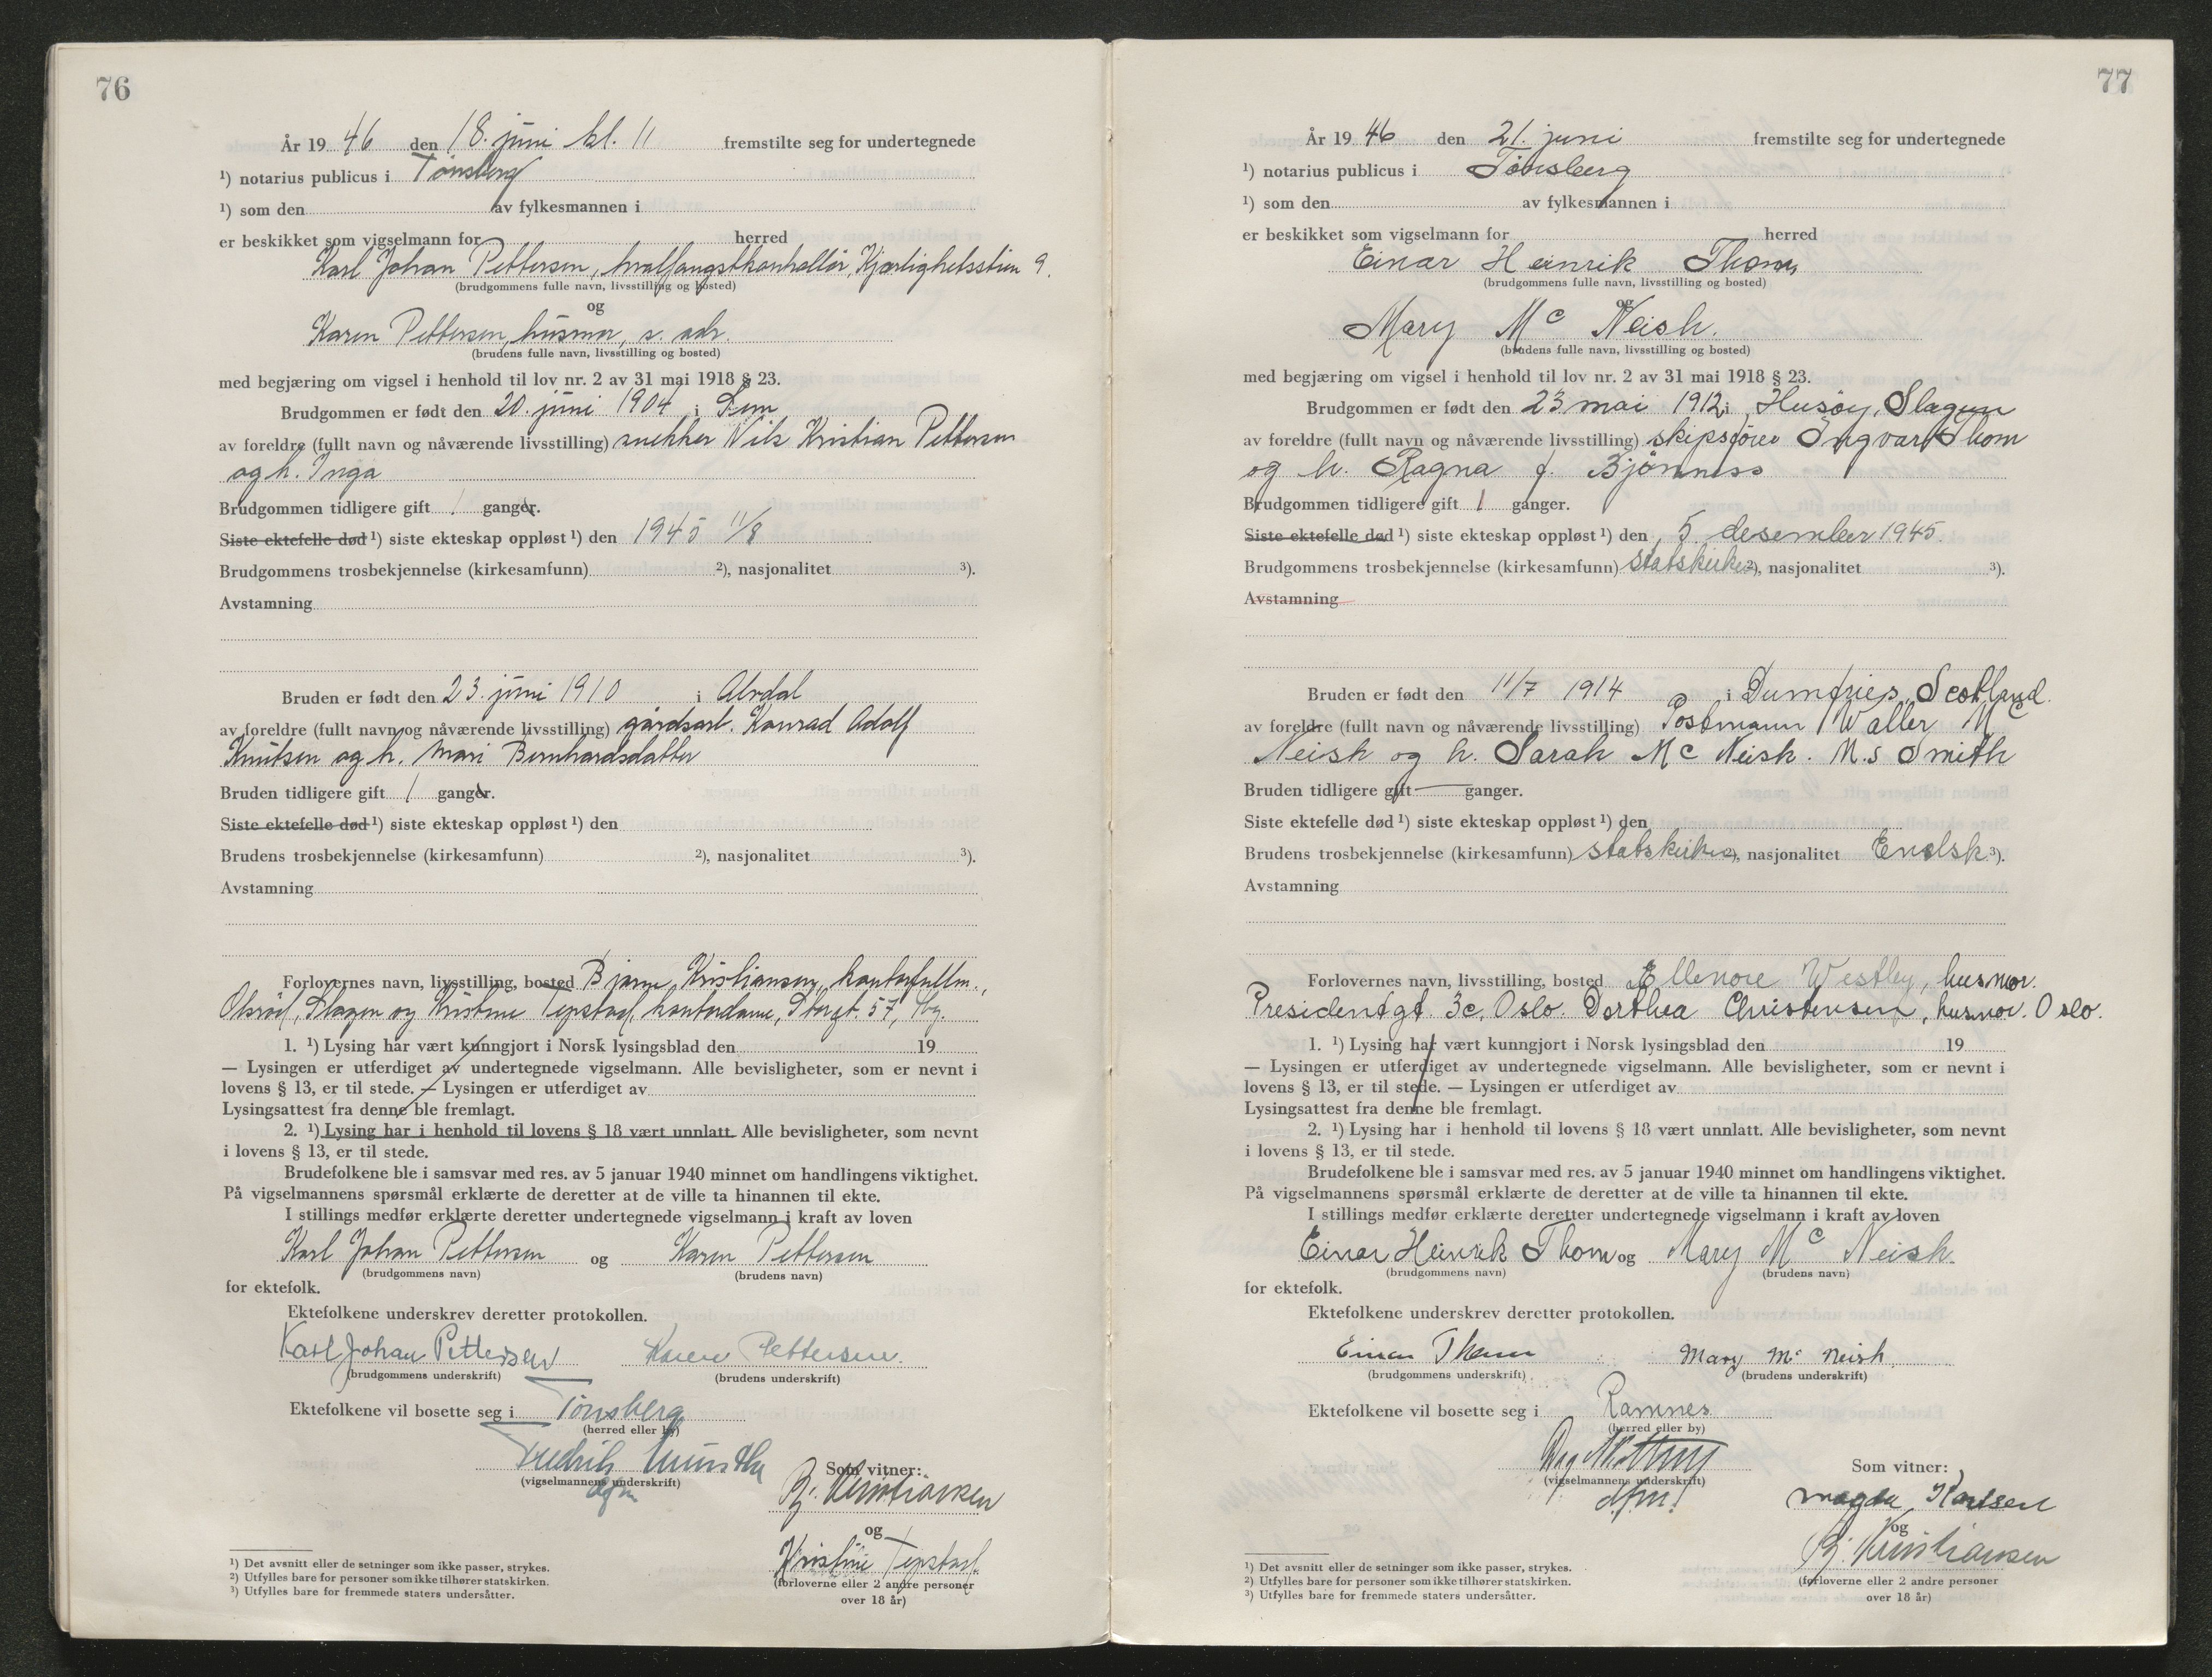 76
År 19 46 den 18. juni kl. 11 fremstilte seg for undertegnede
¹) notarius publicus i Tønsberg
¹) som den av fylkesmannen i
er beskikket som vigselmann for herred
Karl Johan Pettersen, hvalfangstkontrollør, Kjærlighetsstien 9.
(brudgommens fulle navn, livsstilling og bosted)
og
Karen Pettersen, husmor, s. adr.
(brudens fulle navn, livsstilling og bosted)
med begjæring om vigsel i henhold til lov nr. 2 av 31 mai 1918 § 23.
Brudgommen er født den 20. juni 1904 i Sem
av foreldre (fullt navn og nåværende livsstilling) snekker Nils Kristian Pettersen
og h. Inga
Brudgommen tidligere gift 1 ganger.
Siste ektefelle død ¹) siste ekteskap oppløst ¹) den 1945 11/8
Brudgommens trosbekjennelse (kirkesamfunn) ²), nasjonalitet ³).
Avstamning
Bruden er født den 23. juni 1910 i Alvdal
av foreldre (fullt navn og nåværende livsstilling) gårdsarb. Konrad Adolf
Knutsen og h. Mari Bernhardsdatter
Bruden tidligere gift 1 ganger.
Siste ektefelle død ¹) siste ekteskap oppløst ¹) den
Brudens trosbekjennelse (kirkesamfunn) ²), nasjonalitet ³).
Avstamning
Forlovernes navn, livsstilling, bosted Bjarne Kristiansen, kontorfullm.,
Slagen og Kristine Tepstad, kontordame, Storgt. 57, Tbg.
1. ¹) Lysing har vært kunngjort i Norsk lysingsblad den 19
— Lysingen er utferdiget av undertegnede vigselmann. Alle bevisligheter, som er nevnt i
lovens § 13, er til stede. — Lysingen er utferdiget av
Lysingsattest fra denne ble fremlagt.
2. ¹) Lysing har i henhold til lovens § 18 vært unnlatt. Alle bevisligheter, som nevnt
i lovens § 13, er til stede.
Brudefolkene ble i samsvar med res. av 5 januar 1940 minnet om handlingens viktighet.
På vigselmannens spørsmål erklærte de deretter at de ville ta hinannen til ekte.
I stillings medfør erklærte deretter undertegnede vigselmann i kraft av loven
Karl Johan Pettersen og Karen Pettersen
(brudgommens navn) (brudens navn)
for ektefolk.
Ektefolkene underskrev deretter protokollen.
Karl Johan Pettersen Karen Pettersen.
(brudgommens underskrift) (brudens underskrift)
Ektefolkene vil bosette seg i Tønsberg
(herred eller by)
Fredrik
(vigselmannens underskrift) Som vitner:
dfm
Bj. Kristiansen
og
Kristine Tepstad.
(forloverne eller 2 andre personer
over 18 år)
¹) Det avsnitt eller de setninger som ikke passer, strykes.
²) Utfylles bare for personer som ikke tilhører statskirken.
³) Utfylles bare for fremmede staters undersåtter.
77
År 19 46 den 21. juni fremstilte seg for undertegnede
¹) notarius publicus i Tønsberg
¹) som den av fylkesmannen i
er beskikket som vigselmann for herred
Einar Heinrik Thom
(brudgommens fulle navn, livsstilling og bosted)
og
Mary Mc Neish.
(brudens fulle navn, livsstilling og bosted)
med begjæring om vigsel i henhold til lov nr. 2 av 31 mai 1918 § 23.
Brudgommen er født den 23 mai 1912 i Husøy, Slagen
av foreldre (fullt navn og nåværende livsstilling) skipsfører Ingvart Thom
og h. Ragna f. Bjønness
Brudgommen tidligere gift 1 ganger.
Siste ektefelle død ¹) siste ekteskap oppløst ¹) den 5. desember 1945.
Brudgommens trosbekjennelse (kirkesamfunn) statskirke ²), nasjonalitet ³).
Avstamning
Bruden er født den 11/7 1914 i Dumfries, Scotland.
av foreldre (fullt navn og nåværende livsstilling) Postmann Walter Mc
Neish og h. Sarah Mc Neish. M.S Smith
Bruden tidligere gift — ganger.
Siste ektefelle død ¹) siste ekteskap oppløst ¹) den
Brudens trosbekjennelse (kirkesamfunn) statskirke ²), nasjonalitet Enelsk ³).
Avstamning
Forlovernes navn, livsstilling, bosted Ellenore Westby, husmor.
Presidentgt. 3c, Oslo. Dorthea Christensen, husmor. Oslo.
1. ¹) Lysing har vært kunngjort i Norsk lysingsblad den 19
— Lysingen er utferdiget av undertegnede vigselmann. Alle bevisligheter, som er nevnt i
lovens § 13, er til stede. — Lysingen er utferdiget av
Lysingsattest fra denne ble fremlagt.
2. ¹) Lysing har i henhold til lovens § 18 vært unnlatt. Alle bevisligheter, som nevnt
i lovens § 13, er til stede.
Brudefolkene ble i samsvar med res. av 5 januar 1940 minnet om handlingens viktighet.
På vigselmannens spørsmål erklærte de deretter at de ville ta hinannen til ekte.
I stillings medfør erklærte deretter undertegnede vigselmann i kraft av loven
Einar Heinrik Thom og Mary Mc Neish.
(brudgommens navn) (brudens navn)
for ektefolk.
Ektefolkene underskrev deretter protokollen.
Einar Thom Mary Mc Neish.
(brudgommens underskrift) (brudens underskrift)
Ektefolkene vil bosette seg i Ramnes
(herred eller by)
Dag
(vigselmannens underskrift) Som vitner:
dfm.
Magda Karlsen
og
Bj. Kristiansen
(forloverne eller 2 andre personer
over 18 år)
¹) Det avsnitt eller de setninger som ikke passer, strykes.
²) Utfylles bare for personer som ikke tilhører statskirken.
³) Utfylles bare for fremmede staters undersåtter.